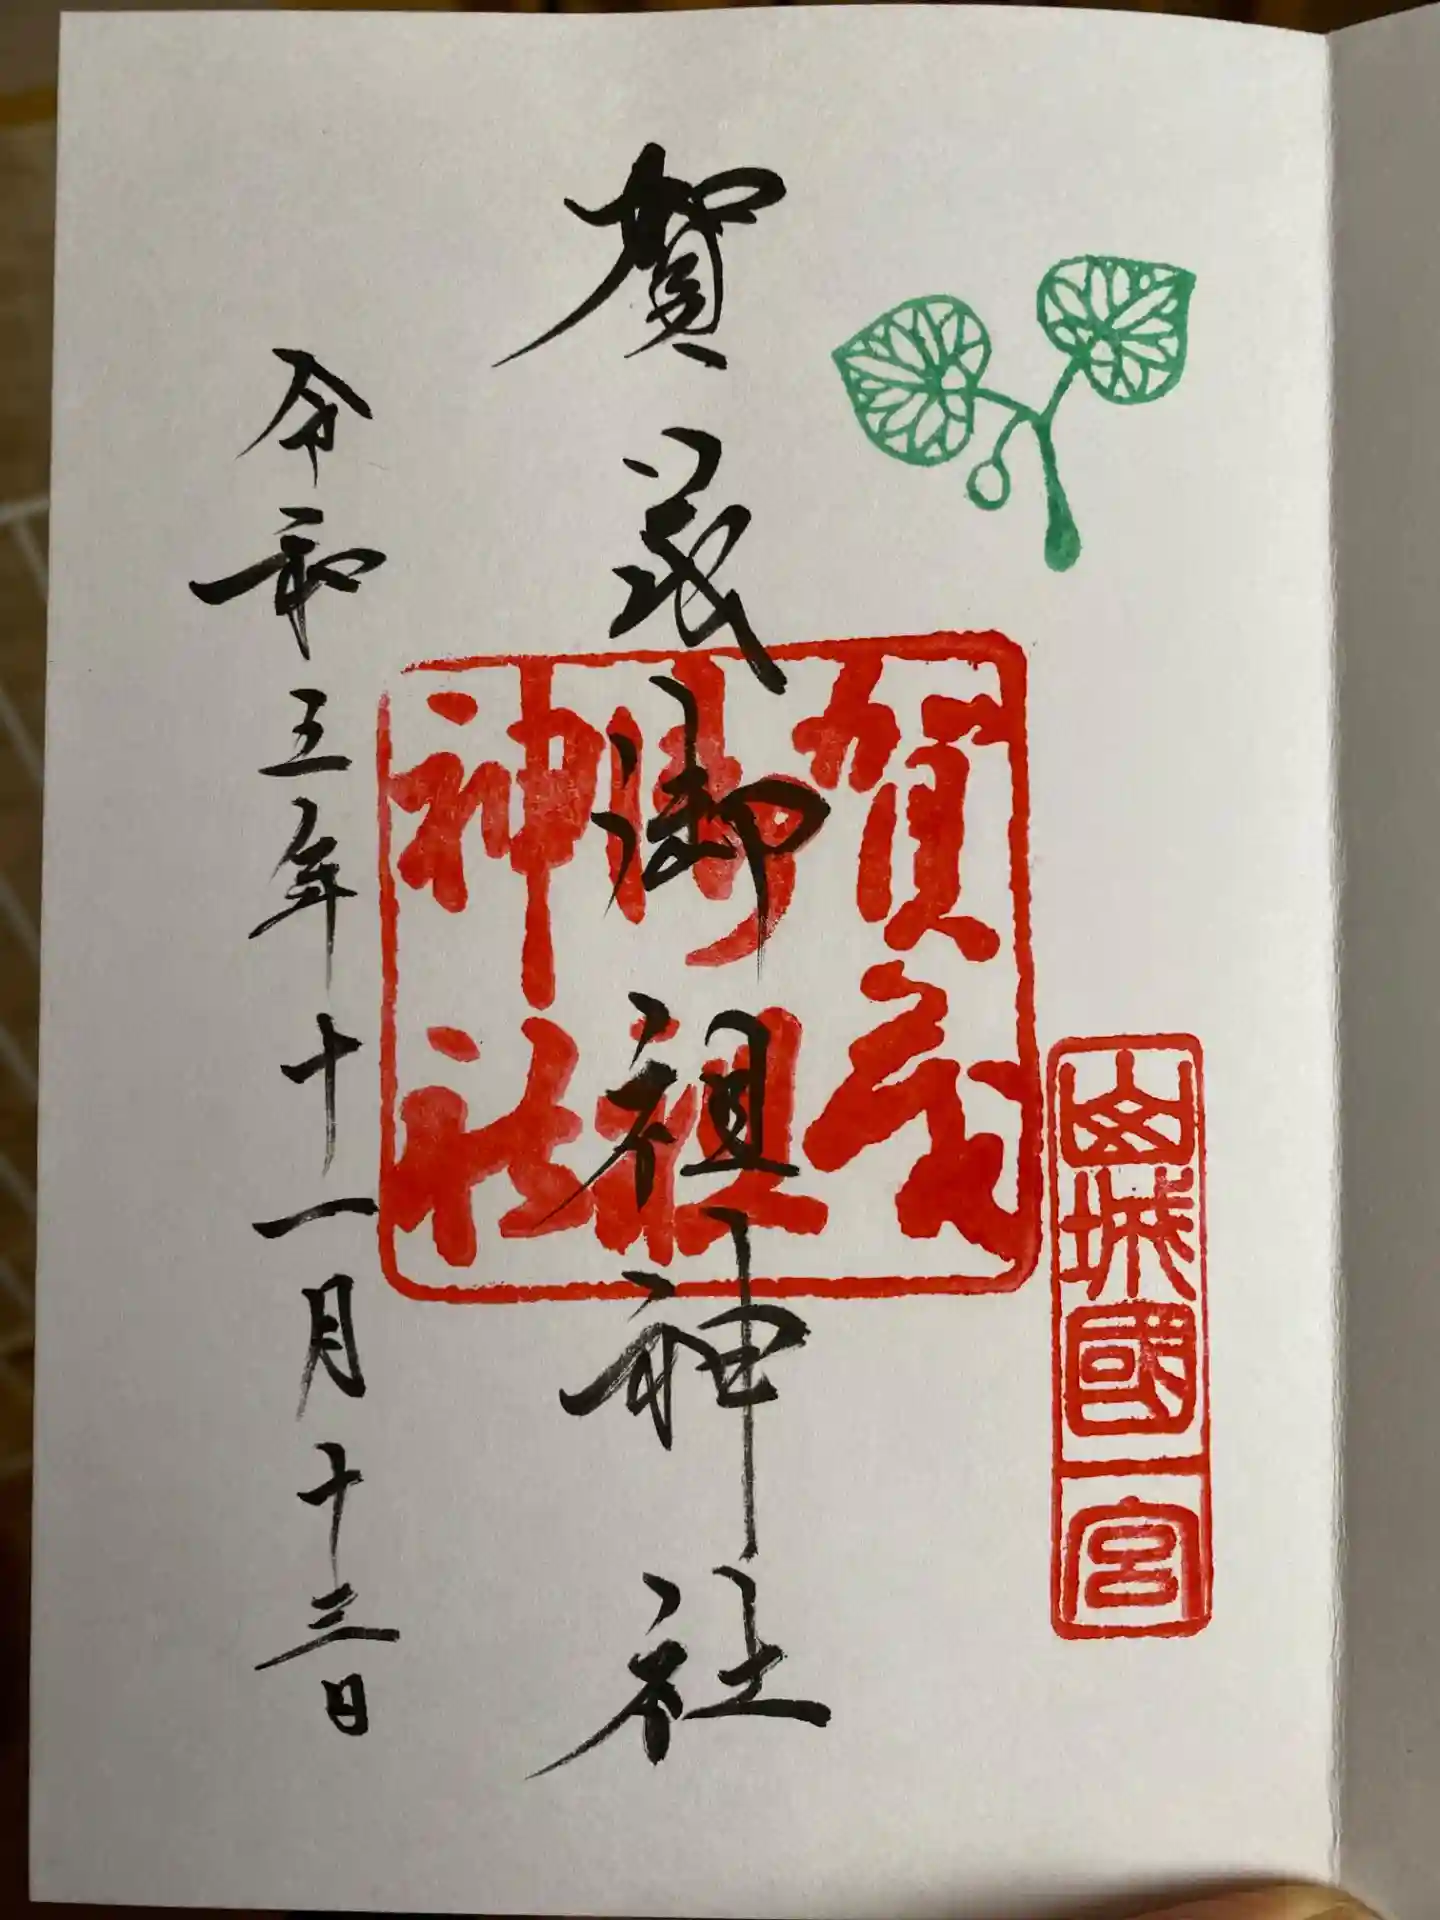 山城國一宮
賀茂御祖神社
賀茂
御祖
神社
令和五年十一月十三日